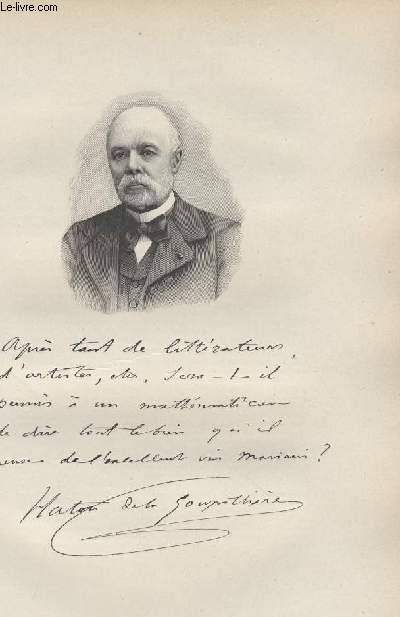 Le-livre.com
Après tant de littérateurs,
d'artistes, etc. Sera-t-il
permis à un mathématicien
de dire tout le bien qu'il
pense de l'excellent vin Mariani?
Haton de la Goupillière